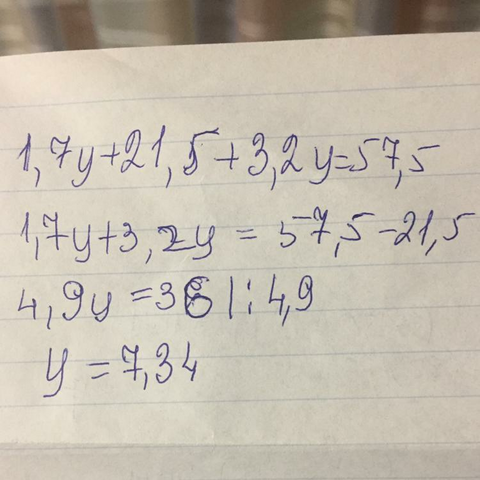 1,7y+21,5+3,2y=57,5
1,7y+3,2y = 57,5-21,5
4,9y =36 |:4,9
y = 7,34